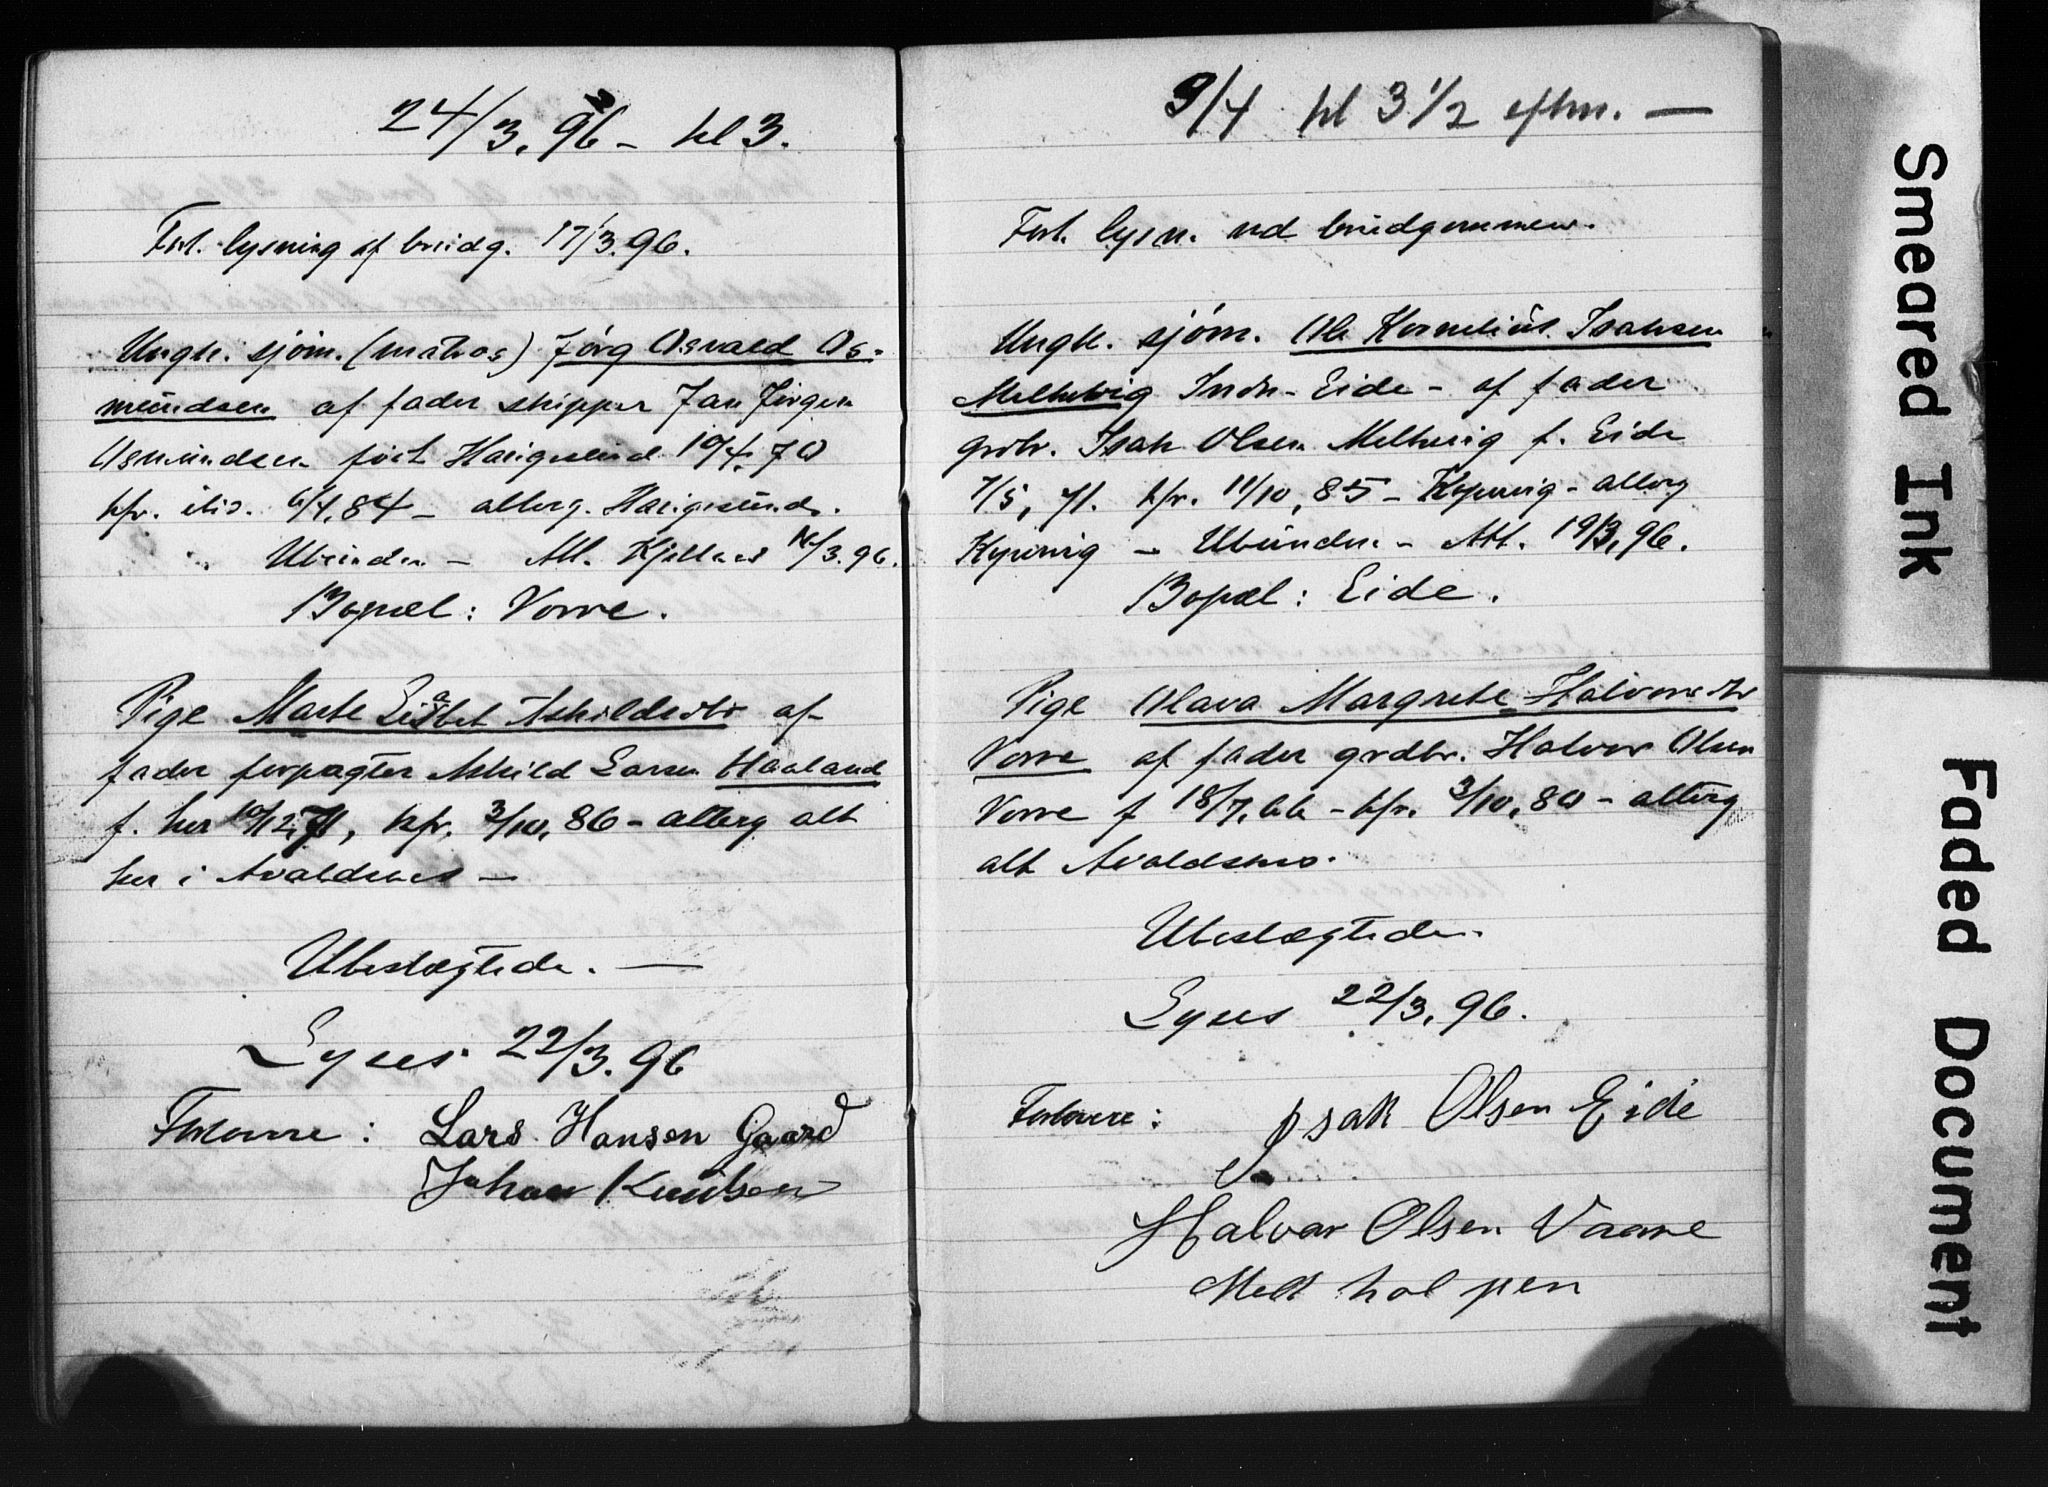 24/3. 96 - kl 3.
Forl. lysning af brudg. 17/3. 96.
Ungk. sjöm. (matros) Jörg Osvald Os-
mundsen af fader skipper Jan Jörgen
Osmundsen födt Haugesund 10/4, 70
kfr. ibid. 6/4, 84 - alterg. Haugesund.
Ubunden - Att. 3. 96.
Bopæl: Vorre.
Pige Marte Lisabet Askildsdtr af
fader forpagter Askild Larsen Haaland
f. her 10/12, 71, kfr. 3/10, 86 - alterg alt
her i Avaldsnes -
Ubeslægtede. —
Lyses 22/3. 96
Forlovere: Lars Hansen Gaard
Johan Knudsen
9/4 kl 3 1/2 eftm. —
Forl. lysn. ved brudgommen.
Ungk. sjöm. Ole Kornelius Isaksen
Melhevig Indr-Eide - af fader
grdbr. Isak Olsen Melhevig f. Eide
7/5, 71. kfr. 11/10, 85 - Kopervig - alterg
Kopervig - Ubunden - Att. 19/3, 96.
Bopæl: Eide.
Pige Olava Margrete Halvorsdtr
Vorre af fader grdbr. Halvor Olsen
Vorre f 18/7, 66 - kfr. 3/10, 80 - alterg
alt Avaldsnes.
Ubeslægtede.
Lyses 22/3, 96.
Forlovere: Isak Olsen Eide
Halvar Olsen Vaare
Med hol pen
Smeared Ink
Faded Document